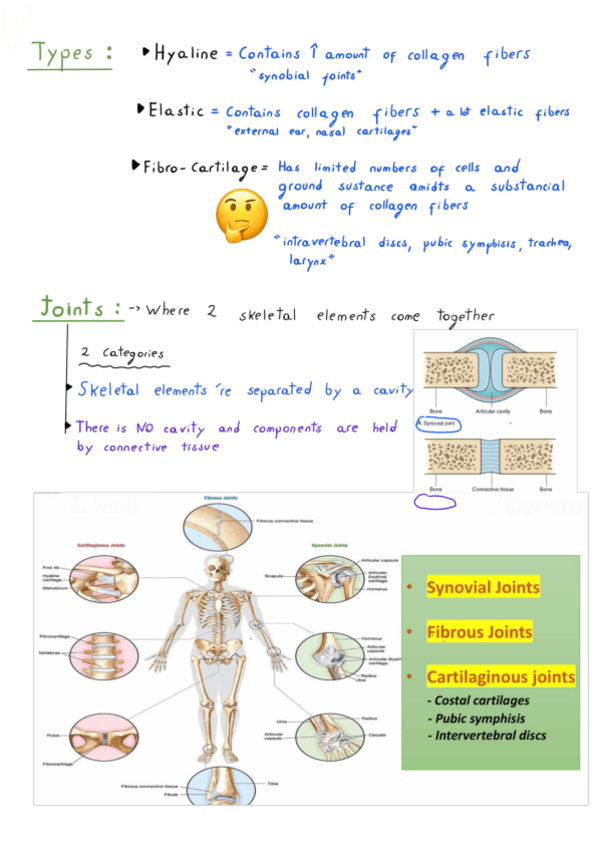 Types :
▶ Hyaline = Contains ↑ amount of collagen fibers
"synobial joints"
▶ Elastic = Contains collagen fibers + a lot elastic fibers
"external ear, nasal cartilages"
▶ Fibro-Cartilage = Has limited numbers of cells and
ground sustance amidts a substancial
amount of collagen fibers
"intravertebral discs, pubic symphisis, trachea,
larynx"
Joints : -> Where 2 skeletal elements come together
2 Categories
▶ Skeletal elements 're separated by a cavity
▶ There is NO cavity and components are held
by connective tissue
Bone Articular cavity Bone
A Synovial joint
Bone Connective tissue Bone
2. Joints
Deusto
Fibrous Joints
Fibrous connective tissue
Cartilaginous Joints
Synovial Joints
First rib
Hyaline
cartilage
Manubrium
Scapula
Articular capsule
Articular
(hyaline)
cartilage
Humerus
Fibrocartilage
Vertebrae
Humerus
Articular
capsule
Articular (hyaline)
cartilage
Radius
Ulna
Pubis
Fibrocartilage
Ulna
Articular
capsule
Radius
Carpals
Fibrous connective tissue
Fibula
Tibia
• Synovial Joints
• Fibrous Joints
• Cartilaginous joints
- Costal cartilages
- Pubic symphisis
- Intervertebral discs